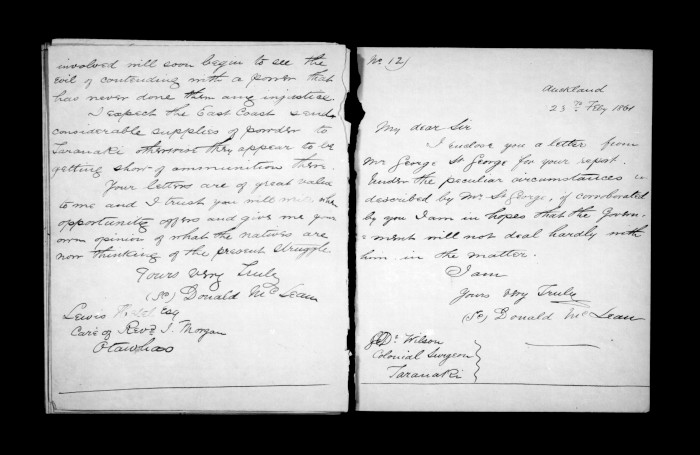 involved will soon begin to see the
evil of contending with a power that
has never done them any injustice.
I expect the East Coast send
considerable supplies of powder to
Taranaki otherwise they appear to be
getting short of ammunition there.
Your letters are of great value
to me and I trust you will write when
opportunity offers and give me your
own opinion of what the natives are
now thinking of the present struggle
Yours very Truly
(Sd) Donald McLean
Lewis Esq
Care of Revd J. Morgan
Otawhao
No 12
Auckland
23rd Feby 1861
My dear Sir
I enclose you a letter from
Mr George St George for your report.
Under the peculiar circumstances
described by Mr St George, if corroborated
by you I am in hopes that the Govern-
-ment will not deal hardly with
him in the matter.
I am
Yours very Truly
(Sd) Donald McLean
Dr Wilson
Colonial Surgeon
Taranaki